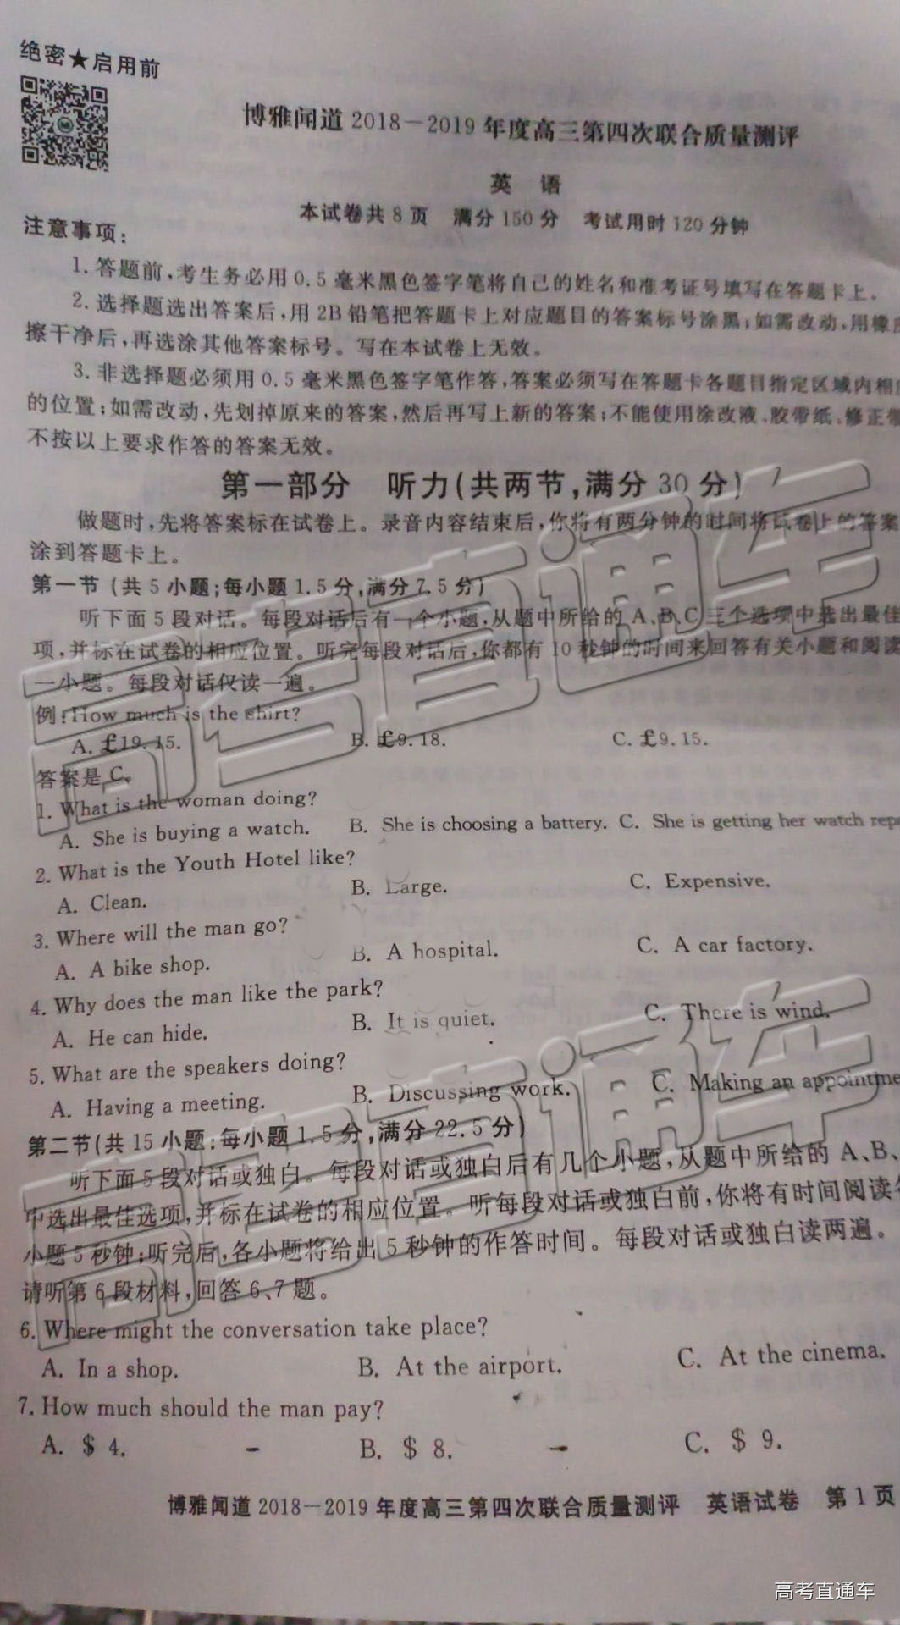 绝密★启用前
博雅闻道2018－2019年度高三第四次联合质量测评
英 语
本试卷共8页 满分150分 考试用时120分钟
注意事项：
1.答题前，考生务必用0.5毫米黑色签字笔将自己的姓名和准考证号填写在答题卡上。
2.选择题选出答案后，用2B铅笔把答题卡上对应题目的答案标号涂黑；如需改动，用橡
擦干净后，再选涂其他答案标号。写在本试卷上无效。
3.非选择题必须用0.5毫米黑色签字笔作答，答案必须写在答题卡各题目指定区域内相
的位置；如需改动，先划掉原来的答案，然后再写上新的答案；不能使用涂改液、胶带纸、修正带
不按以上要求作答的答案无效。
第一部分 听力(共两节，满分30分)
做题时，先将答案标在试卷上。录音内容结束后，你将有两分钟的时间将试卷上的答案
涂到答题卡上。
第一节 (共5小题；每小题1.5分，满分7.5分)
听下面5段对话。每段对话后有一个小题，从题中所给的A、B、C三个选项中选出最佳
项，并标在试卷的相应位置。听完每段对话后，你都有10秒钟的时间来回答有关小题和阅读
一小题。每段对话仅读一遍。
例：How much is the shirt?
A. £19.15. B. £9.18. C. £9.15.
答案是C。
1. What is the woman doing?
A. She is buying a watch. B. She is choosing a battery. C. She is getting her watch rep
2. What is the Youth Hotel like?
A. Clean. B. Large. C. Expensive.
3. Where will the man go?
A. A bike shop. B. A hospital. C. A car factory.
4. Why does the man like the park?
A. He can hide. B. It is quiet. C. There is wind.
5. What are the speakers doing?
A. Having a meeting. B. Discussing work. C. Making an appointme
第二节(共15小题；每小题1.5分，满分22.5分)
听下面5段对话或独白。每段对话或独白后有几个小题，从题中所给的A、B、
中选出最佳选项，并标在试卷的相应位置。听每段对话或独白前，你将有时间阅读
小题5秒钟；听完后，各小题将给出5秒钟的作答时间。每段对话或独白读两遍。
请听第6段材料，回答6、7题。
6. Where might the conversation take place?
A. In a shop. B. At the airport. C. At the cinema.
7. How much should the man pay?
A. $ 4. B. $ 8. C. $ 9.
博雅闻道2018－2019年度高三第四次联合质量测评 英语试卷 第1页
高考直通车
高考直通车
高考直通车